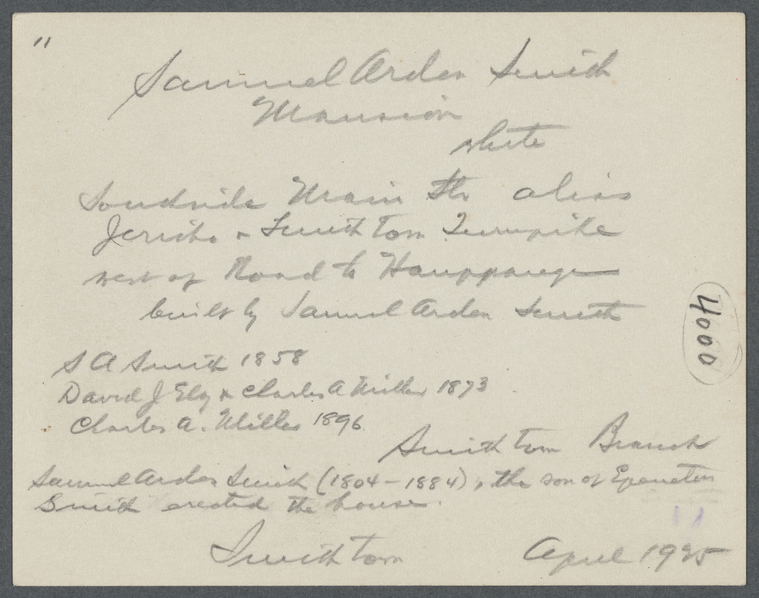 "
Samuel Arden Smith
Mansion
white
Southside Main St. alias
Jericho & Smithtown Turnpike
west of Road to Hauppauge
built by Samuel Arden Smith
4000
S A Smith 1858
David J Ely & Charles A Miller 1873
Charles A. Miller 1896
Smithtown Branch
Samuel Arden Smith (1804-1884), the son of Epenetus
Smith erected the house.
Smithtown April 1925